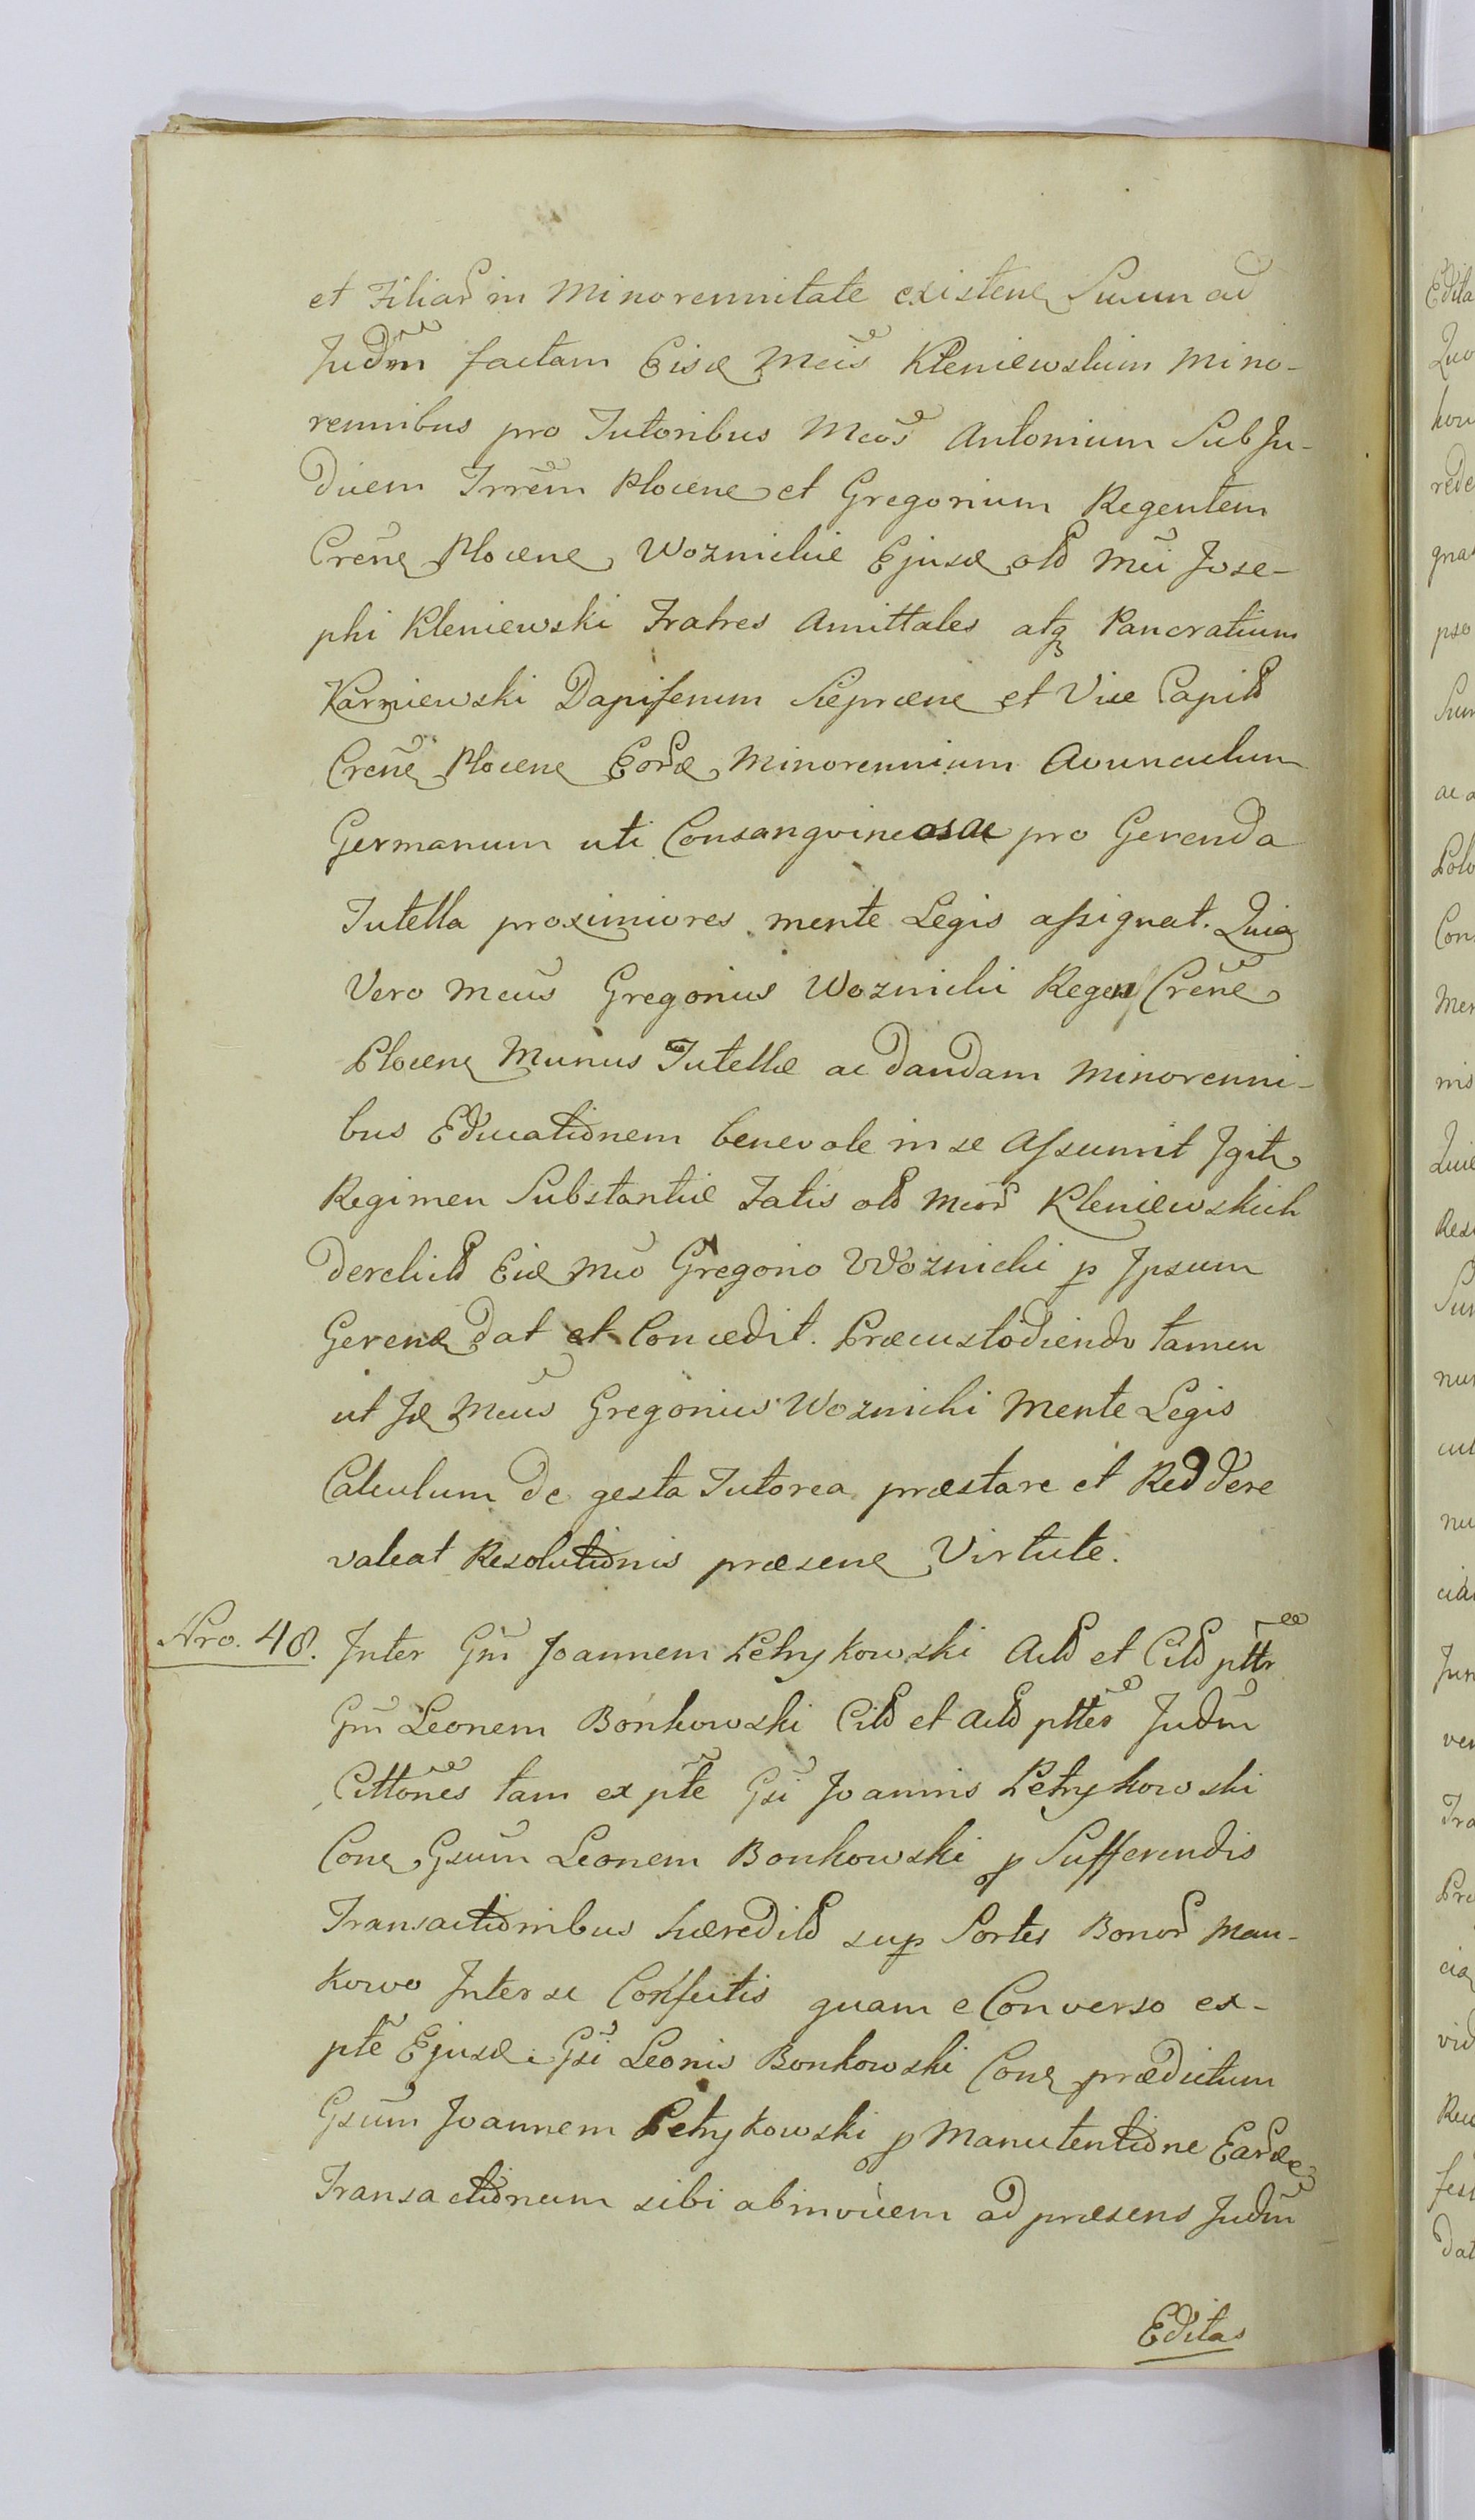 et Filiar in Minorennitate existen Suum ad
Judm factam Eisd Mcis Kleniewskim Mino-
rennibus pro Tutoribus Mcos Antonium SubJu-
dicem Trrem Plocen et Gregorium Regentem
Cren Plocen Woznickie Ejusd old Mci Jose-
phi Kleniewski Fratres Amittales atq Pancratium
Karniewski Dapiferum Sieprcen et Vice Capit
Cren Plocen Eord Minorennium Avunculum
Germanum uti Consangvineos ac pro Gerenda
Tutella proximiores mente Legis assignat. Quia
Vero Mcus Gregorius Woznicki Regens Cren
Plocen Munus Tutellæ ac dandam Minorenni-
bus Educationem benevole in se Assumit Igitr
Regimen Substantiæ Fatis old Mcor Kleniewskich
derelict Eid Mco Gregorio Woznicki p Ipsum
Gerend dat et Concedit. Præcustodiendo tamen
ut Jd Mcus Gregorius Woznicki Mente Legis
Calculum de gesta Tutorea præstare et Reddere
valeat Resolutionis præsen Virtute.
Nro. 48. Inter Gm Joannem Petrykowski Act et Cit pttr
Gm Leonem Bonkowski Cit et Act ptter Judm
Cittones tam ex pte Gsi Joannis Petrykowski
Con Gsum Leonem Bonkowski p Sufferendis
Transactionibus hæredit sup Sortes Bonor Man-
kowo Inter se Confectis quam e Converso ex-
pte Ejusd Gsi Leonis Bonkowski Con prædictum
Gsum Joannem Petrykowski p Manutentione Eard
Transactionum sibi abinvicem ad præsens Judm
Editas